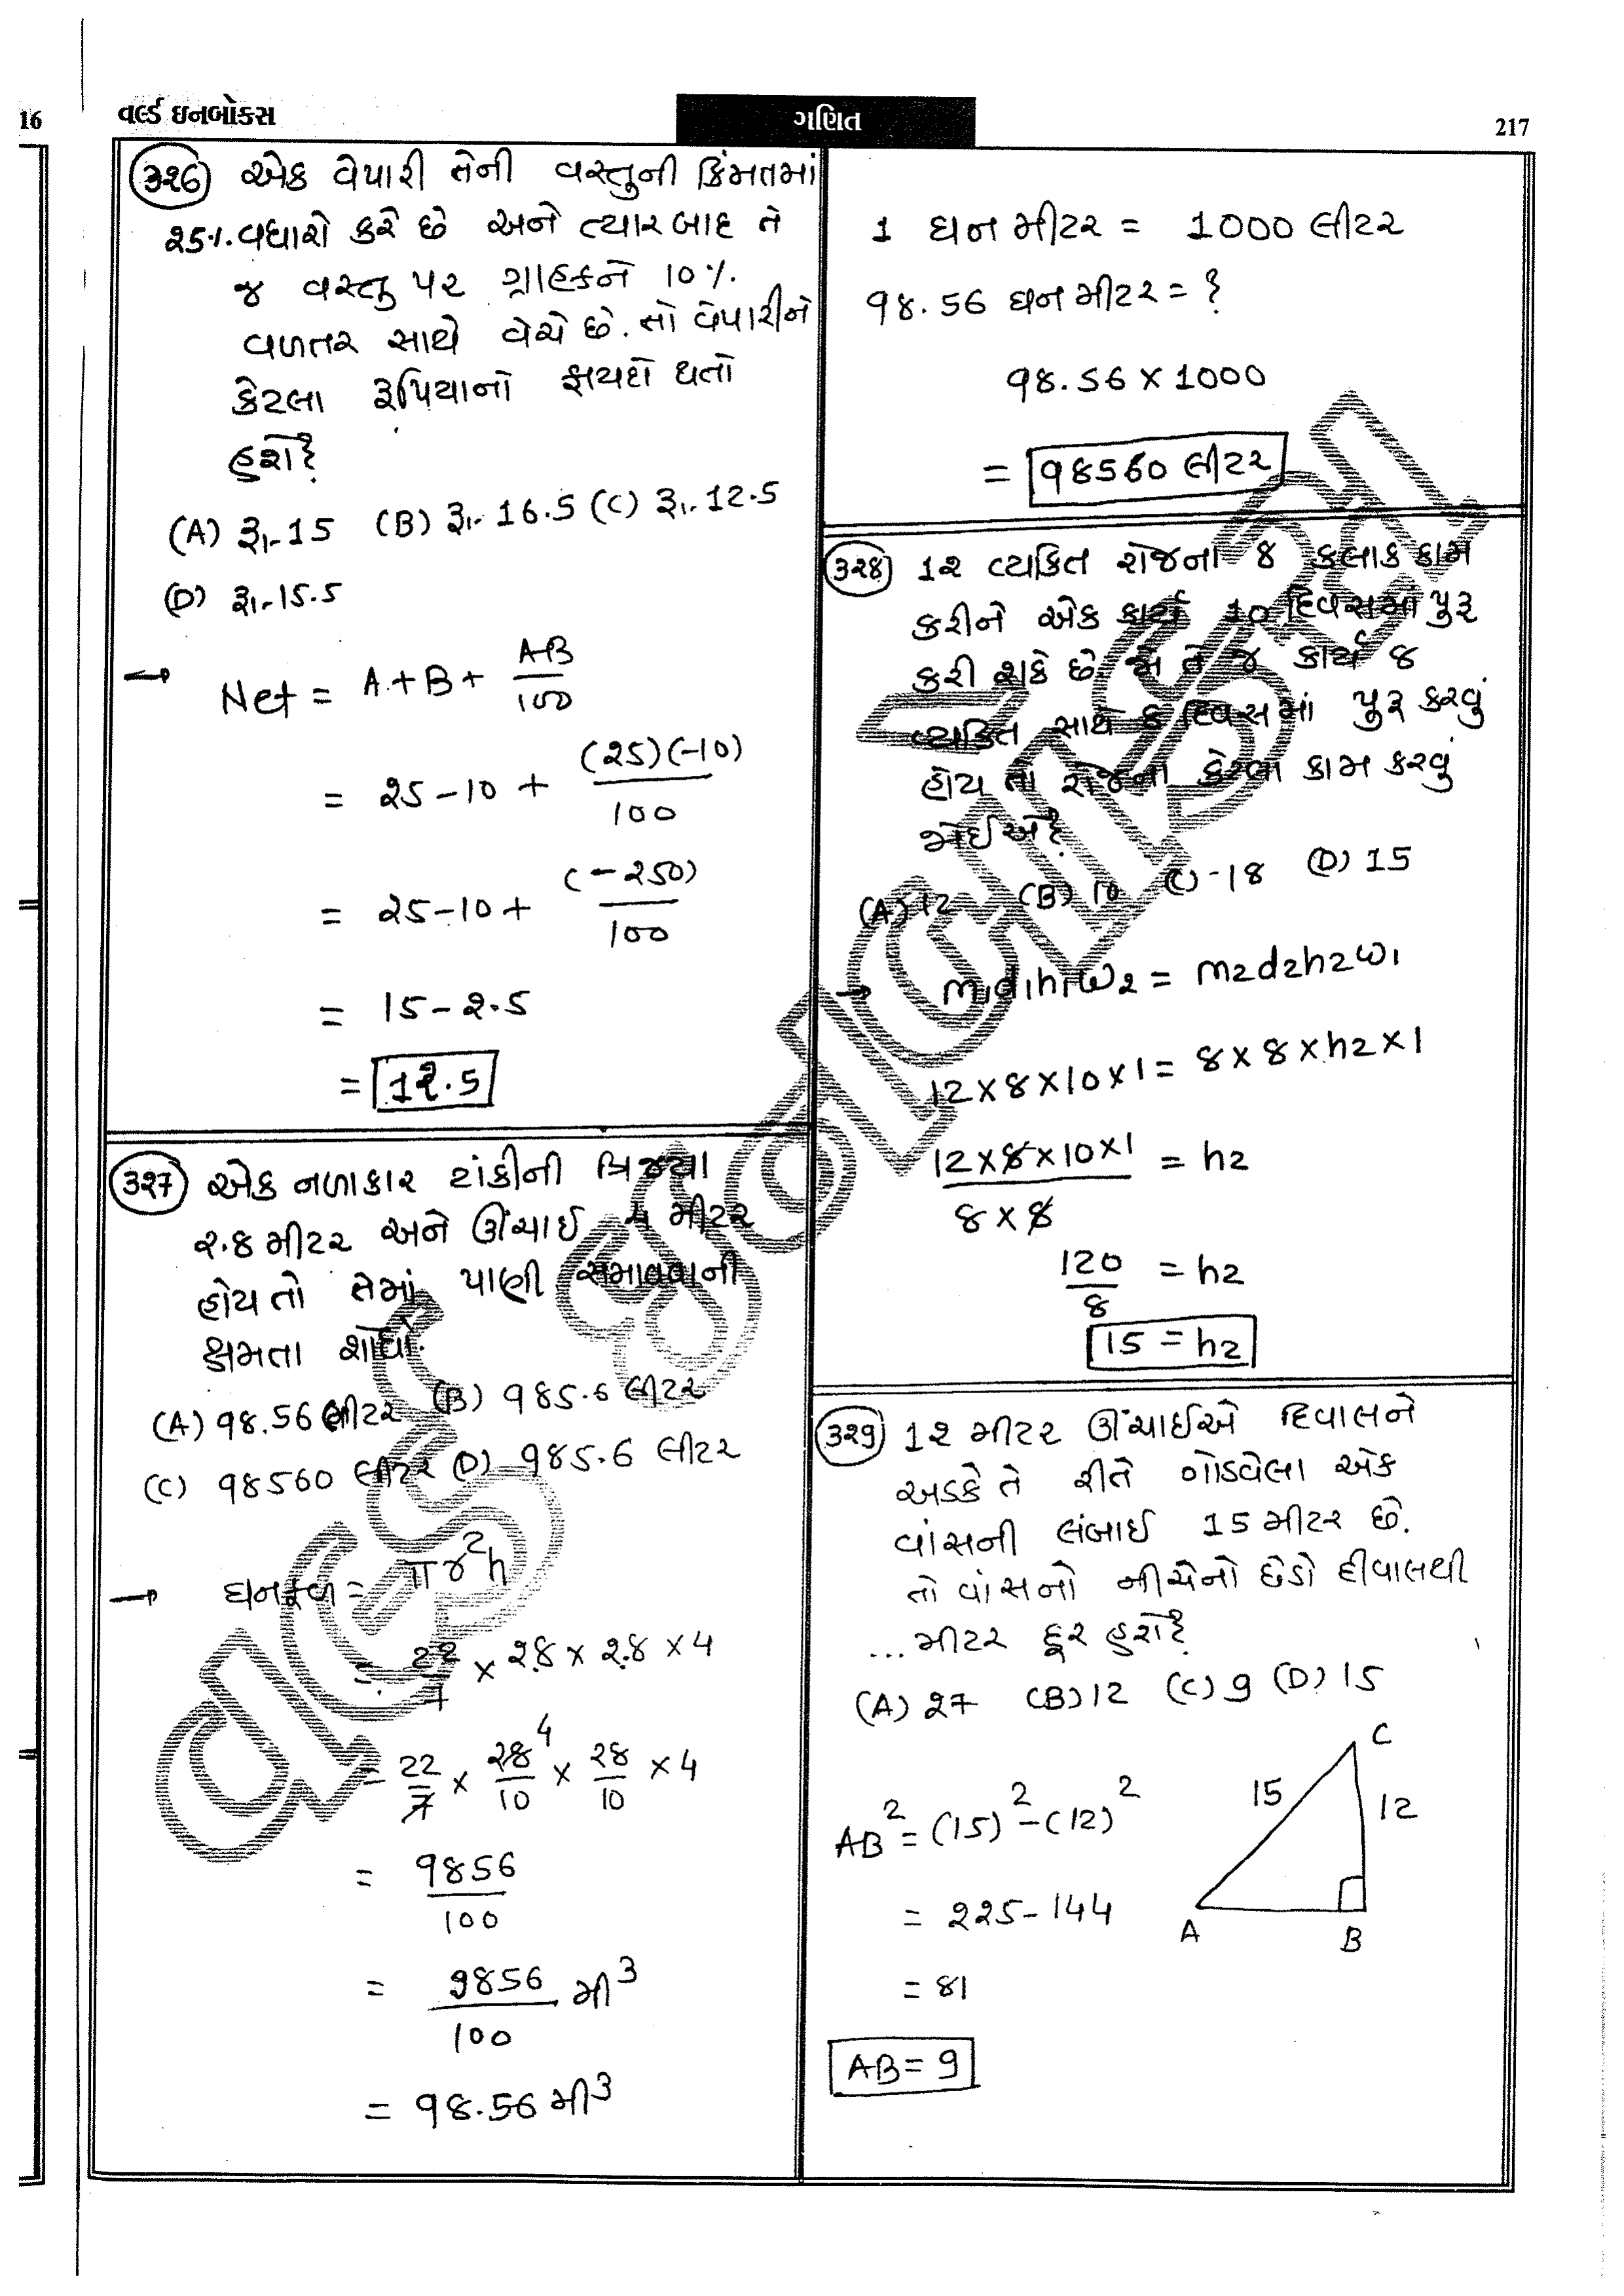 16
વર્લ્ડ ઇનબોક્સ
ગણિત
217
326 એક વેપારી તેની વસ્તુની કિંમતમાં
૨5%. વધારો કરે છે અને ત્યારબાદ તે
જ વસ્તુ પર ગ્રાહકને 10%.
વળતર સાથે વેચે છે. તો વેપારીને
કેટલા રૂપિયાનો ફાયદો થતો
હશે?
(A) રૂા.-15 (B) રૂા.- 16.5 (C) રૂા.-12.5
(D) રૂા.-15.5
→ Net = A+B+ AB/100
= ૨5-10 + (૨5)(-10)/100
= ૨5-10+ (-૨50)/100
= 15-૨.5
= 1૨.5
3૨7 એક નળાકાર ટાંકીની ત્રિજ્યા
૨.8 મીટર અને ઊંચાઈ 4 મીટર
હોય તો તેમાં પાણી સમાવવાની
ક્ષમતા શોધો.
(A) 98.56 લીટર (B) 985.6 લીટર
(C) 98560 લીટર (D) 985.6 લીટર
→ ઘનફળ = πr²h
= 22/7 × ૨.8 × ૨.8 × 4
= 22/7 × ૨8/10 4 × ૨8/10 × 4
= 9856/100
= 9856/100 મી³
= 98.56 મી³
1 ઘન મીટર = 1000 લીટર
98.56 ઘન મીટર = ?
98.56 × 1000
= 98560 લીટર
3૨8 1૨ વ્યકિત રોજના 8 કલાક કામ
કરીને એક કાર્ય 10 દિવસમાં પુરૂ
કરી શકે છે. જો તે જ કાર્ય 8
વ્યકિત સાથે 8 દિવસમાં પુરૂ કરવું
હોય તો રોજના કેટલા કામ કરવું
જોઈએ?
(A) 12 (B) 10 (C) -18 (D) 15
→ m1d1h1w2 = m2d2h2w1
12×8×10×1 = 8×8×h2×1
12×8×10×1/8×8 = h2
120/8 = h2
15 = h2
3૨9 1૨ મીટર ઊંચાઈએ દિવાલને
અડકે તે રીતે ગોઠવેલા એક
વાંસની લંબાઈ 15 મીટર છે.
તો વાંસનો નીચેનો છેડો દીવાલથી
... મીટર દૂર હશે?
(A) ૨7 (B) 12 (C) 9 (D) 15
C
15
12
A
B
AB² = (15)² - (12)²
= ૨૨5-144
= 81
AB = 9